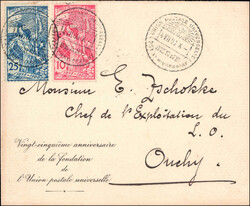 25
10
Monsieur E. Zschokke
Chef de l'Exploitation du
L. O.
Ouchy
Vingt-cinquième anniversaire
de la fondation
de
l'Union postale universelle